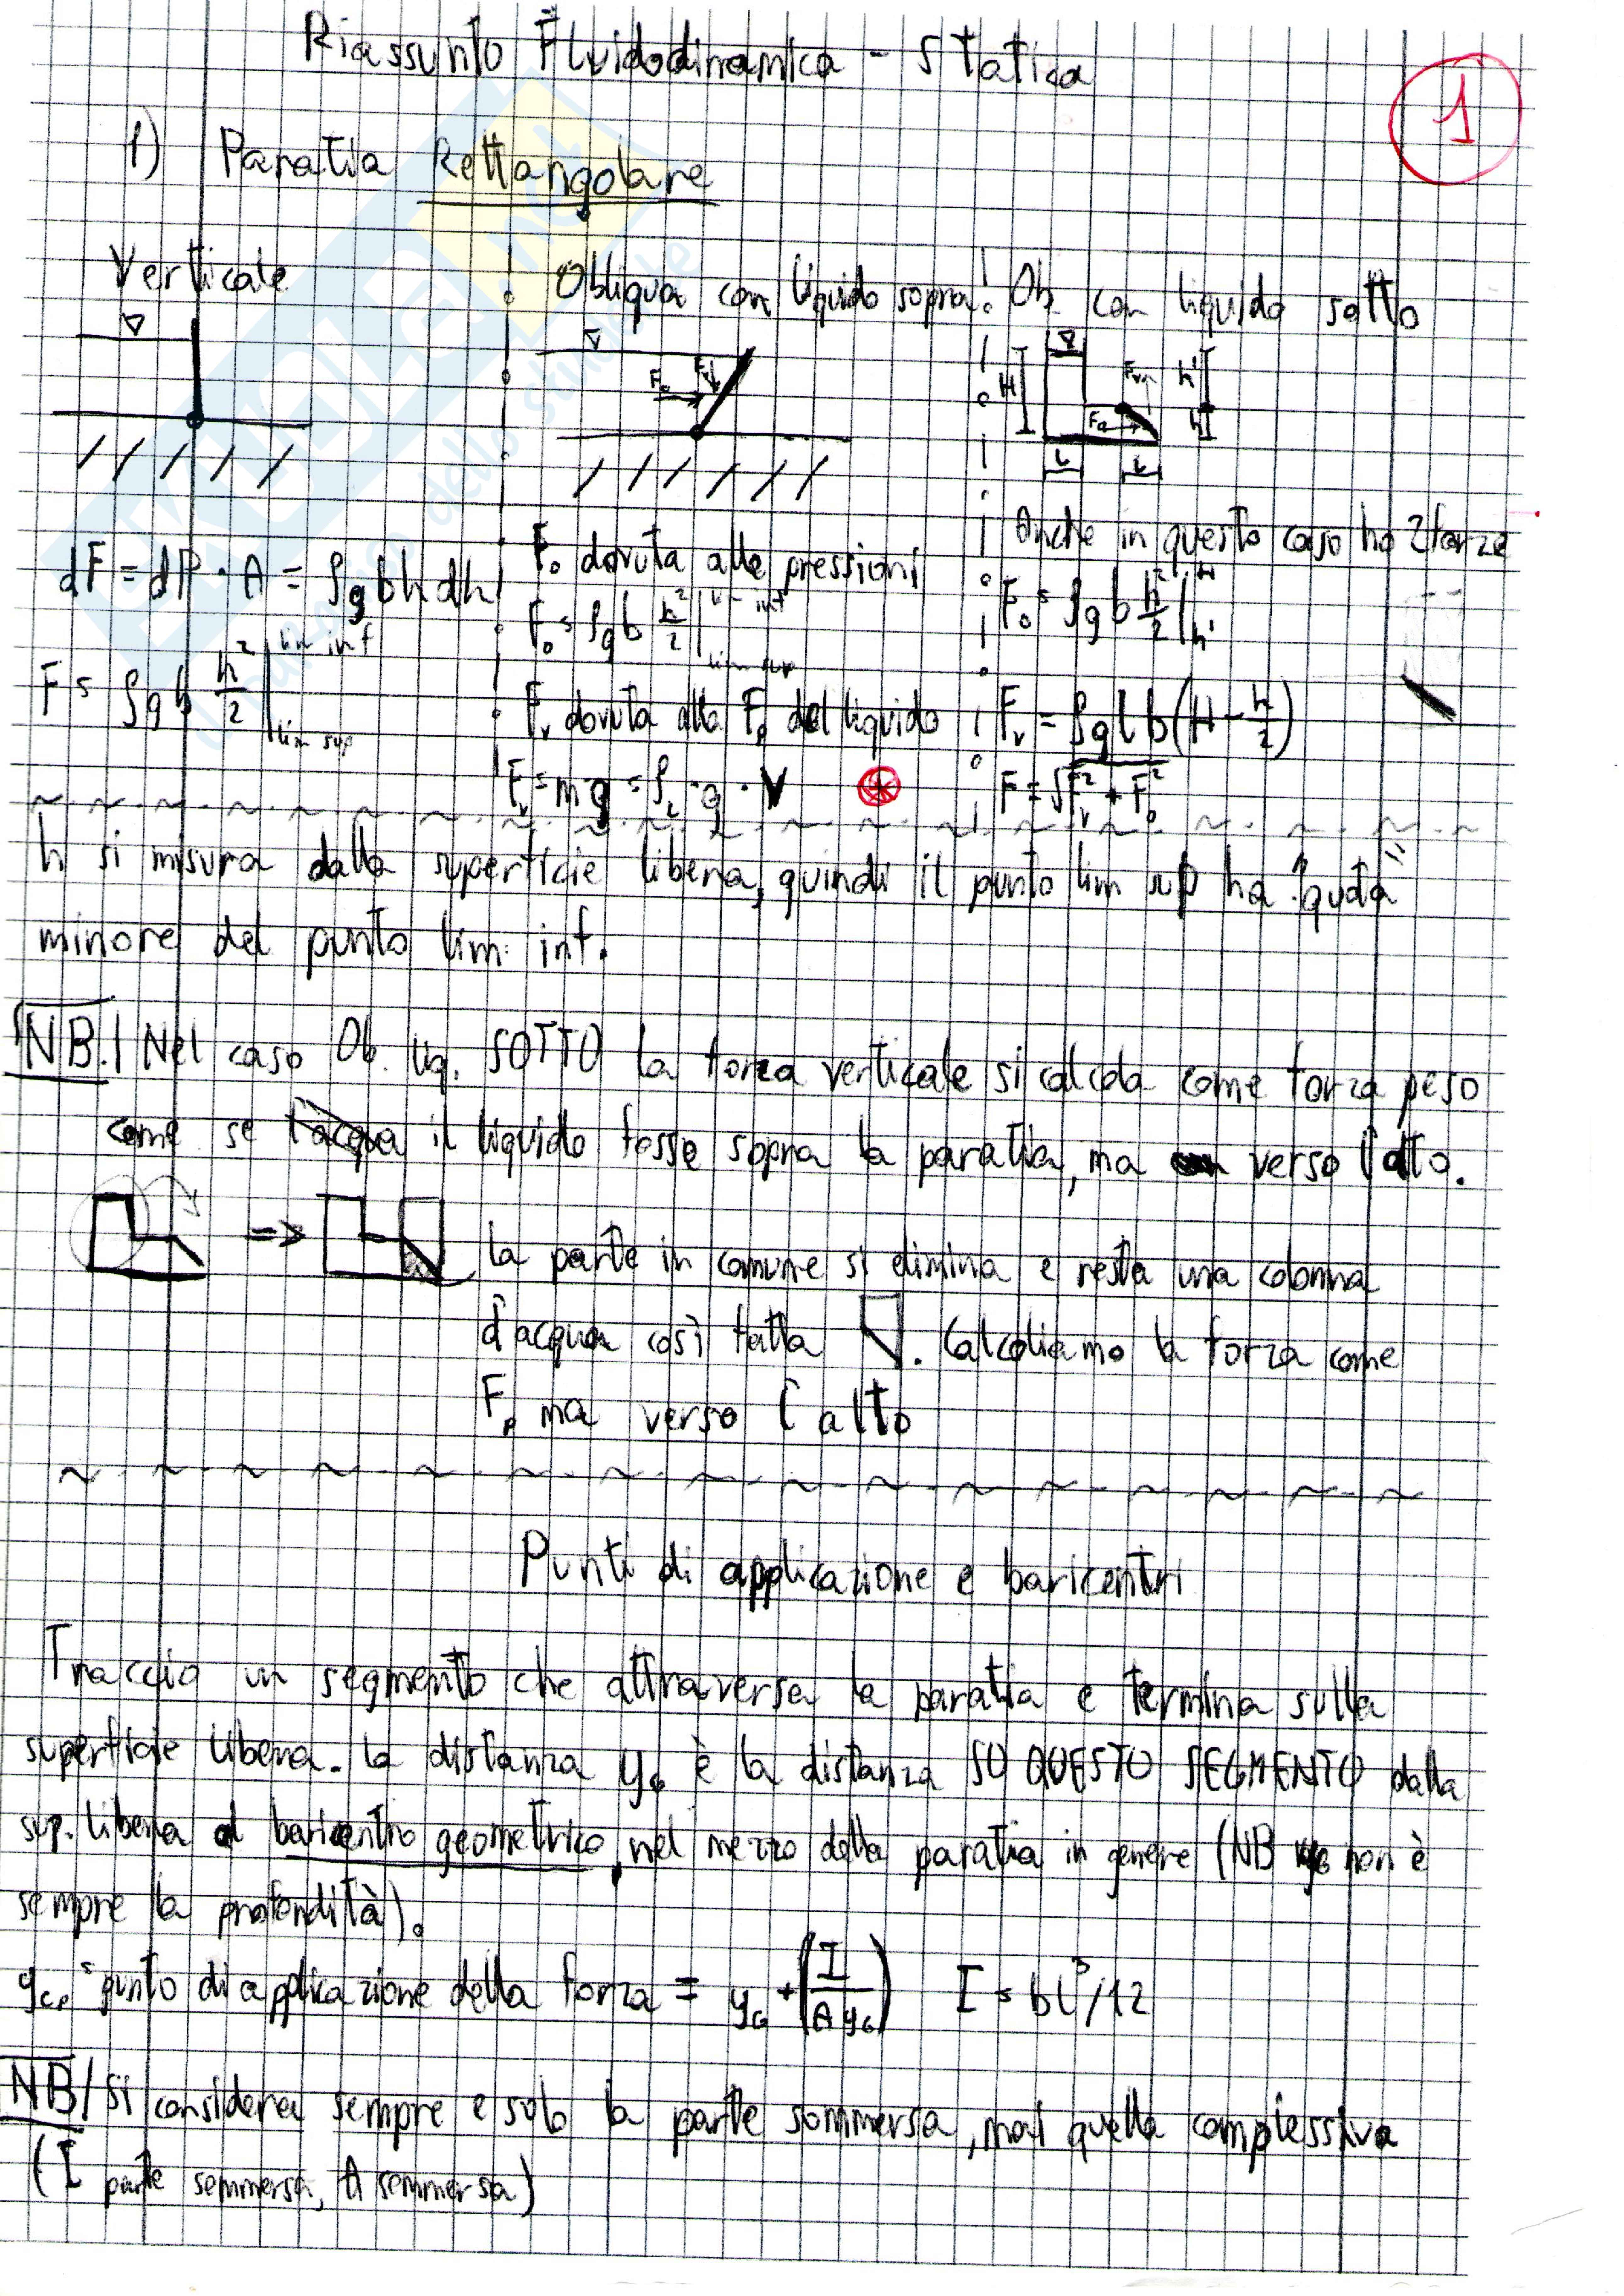 Riassunto Fluidodinamica - Statica
1
1) Paratia Rettangolare
Verticale
Obliqua con liquido sopra
Ob. con liquido sotto
F₀ Fᵥ
H h' h F₀ Fᵥ L L
dF = dP · A = ρg b h dh
F = ρg b h²/2 |lim inf lim sup
F₀ dovuta alle pressioni
F₀ = ρg b h²/2 |lim inf lim sup
Fᵥ dovuta alla Fₚ del liquido
Fᵥ = m·g = ρ_L · g · V
Anche in questo caso ho 2 forze
F₀ = ρg b h²/2 |H h'
Fᵥ = ρg l b (H - h/2)
F = √(Fᵥ² + F₀²)
h si misura dalla superficie libera, quindi il punto lim sup ha "quota"
minore del punto lim inf.
NB. Nel caso Ob. liq. SOTTO la forza verticale si calcola come forza peso
come se l'acqua il liquido fosse sopra la paratia, ma verso l'alto.
=> La parte in comune si elimina e resta una colonna
d'acqua così fatta . Calcoliamo la forza come
Fₚ ma verso l'alto
Punti di applicazione e baricentri
Traccio un segmento che attraversa la paratia e termina sulla
superficie libera. La distanza y_G è la distanza SU QUESTO SEGMENTO dalla
sup. libera al baricentro geometrico, nel mezzo della paratia in genere (NB y_G non è
sempre la profondità).
y_cp = punto di applicazione della forza = y_G + (I / A y_G) I = bl³/12
NB/ si considera sempre e solo la parte sommersa, mai quella complessiva
(I parte sommersa, A sommersa)